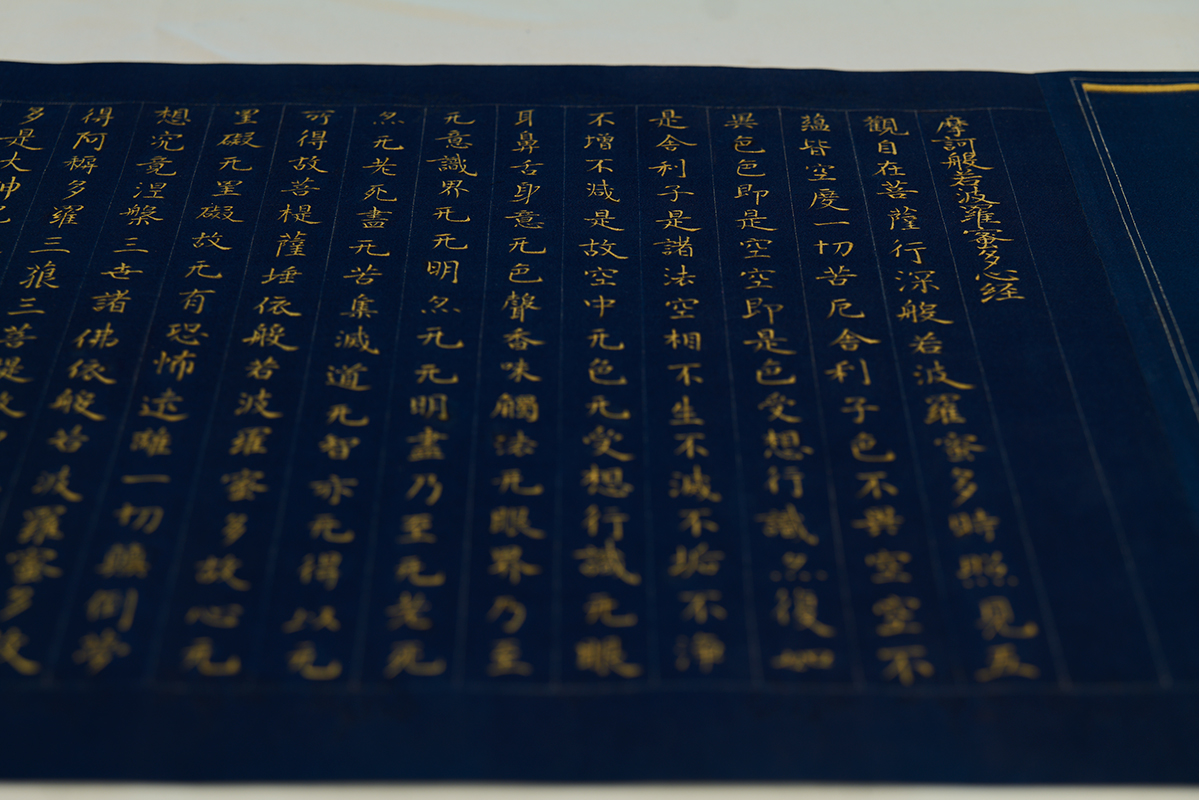 摩訶般若波羅蜜多心経
觀自在菩薩行深般若波羅蜜多時照見五
蘊皆空度一切苦厄舍利子色不異空空不
異色色即是空空即是色受想行識亦復如
是舍利子是諸法空相不生不滅不垢不淨
不增不減是故空中无色无受想行識无眼
耳鼻舌身意无色聲香味觸法无眼界乃至
无意識界无无明亦无无明盡乃至无老死
亦无老死盡无苦集滅道无智亦无得以无
所得故菩提薩埵依般若波羅蜜多故心无
罣礙无罣礙故无有恐怖遠離一切顛倒夢
想究竟涅槃三世諸佛依般若波羅蜜多故
得阿耨多羅三藐三菩提故
多是大神